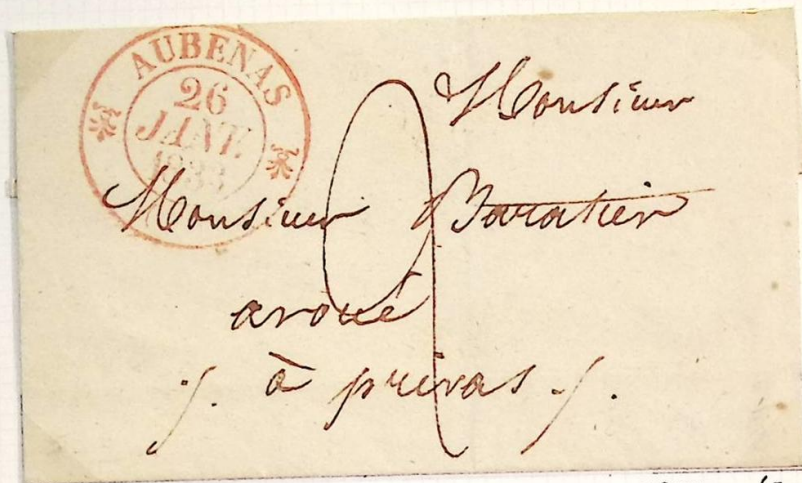 AUBENAS
26
JANV.
1833
Monsieur
Monsieur Baratier
avoué
à privas
2